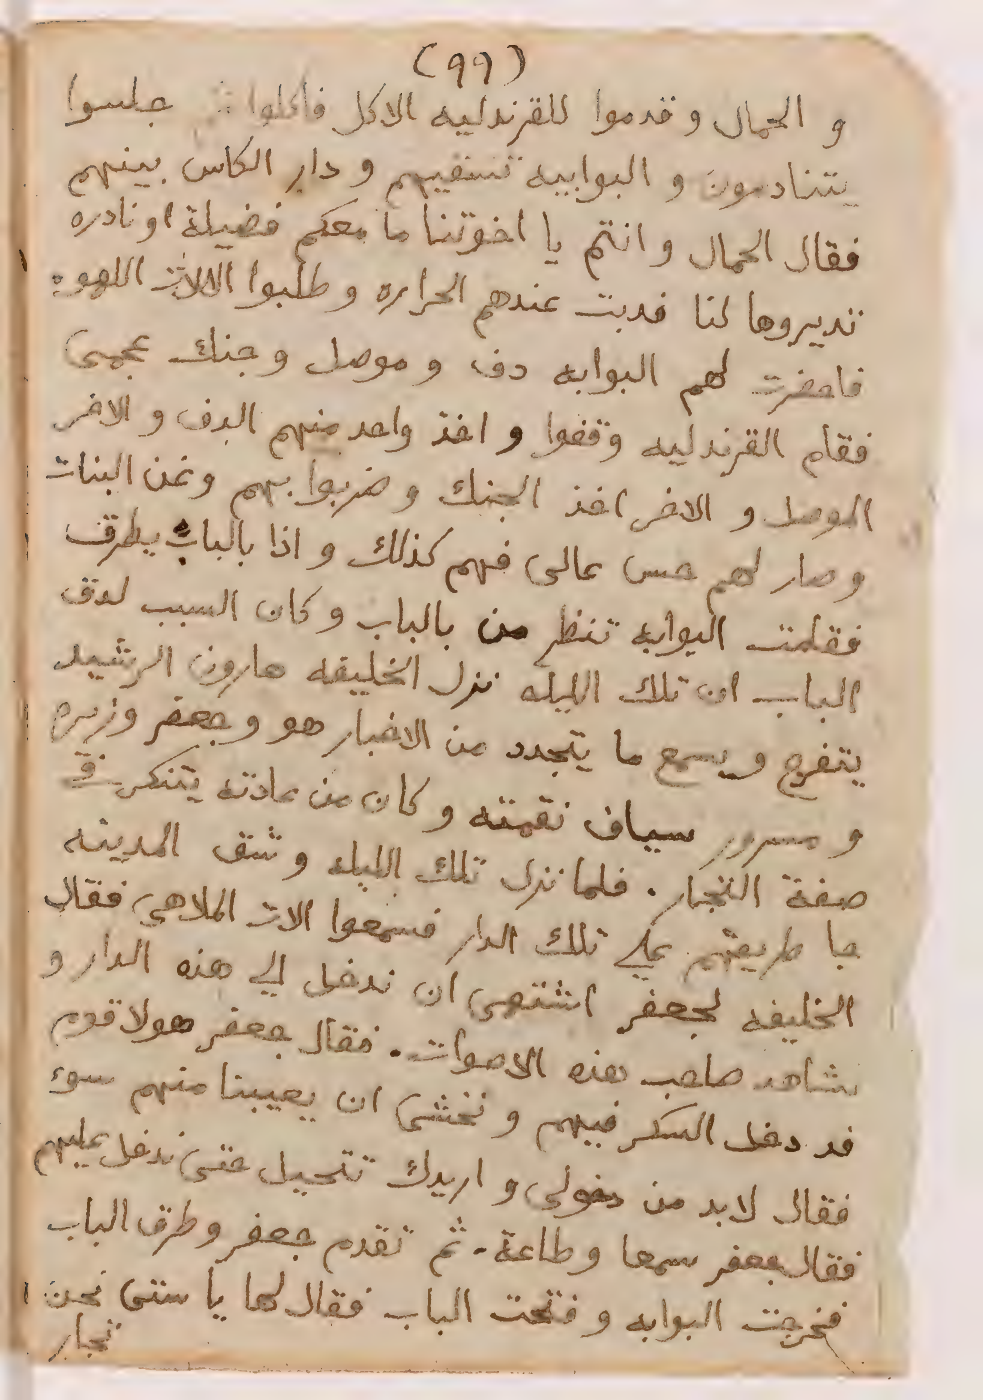 (٩٩)
و الحمال و قدموا للقرندليه الاكل فاكلوا ثم جلسوا
يتنادمون و البوابيه تسقيهم و دار الكاس بينهم
فقال الحمال و انتم يا اخوتنا ما معكم فضيلة او نادره
تديروها لنا فدبت عندهم الحراره و طلبوا الالات اللهو
فاحضرت لهم البوابه دف و موصل و جنك عجمى
فقام القرندليه وقفوا و اخذ واحد منهم الدف و الاخر
الموصل و الاخر اخذ الجنك و ضربوا بهم وغن البنات
و صار لهم حس عالى فهم كذلك و اذا بالباب يطرق
فقامت البوابه تنظر من بالباب و كان السبب لدق
الباب ان تلك الليله نزل الخليفه هارون الرشيد
يتفرج و يسمع ما يتجدد من الاخبار هو و جعفر وزيره
و مسرور سياف نقمته و كان من عادته يتنكر فى
صفة التجار. فلما نزل تلك الليله و شق المدينه
جا طريقهم على تلك الدار فسمعوا الات الملاهى فقال
الخليفه لجعفر اشتهى ان ندخل الى هذه الدار و
نشاهد صاحب هذه الاصوات. فقال جعفر هولا قوم
قد دخل السكر فيهم و نخشى ان يصيبنا منهم سوء
فقال لابد من دخولى و اريدك تتحيل حتى ندخل عليهم
فقال جعفر سمعا و طاعة. ثم تقدم جعفر و طرق الباب
فخرجت البوابه و فتحت الباب فقال لها يا ستى نحن
تجار